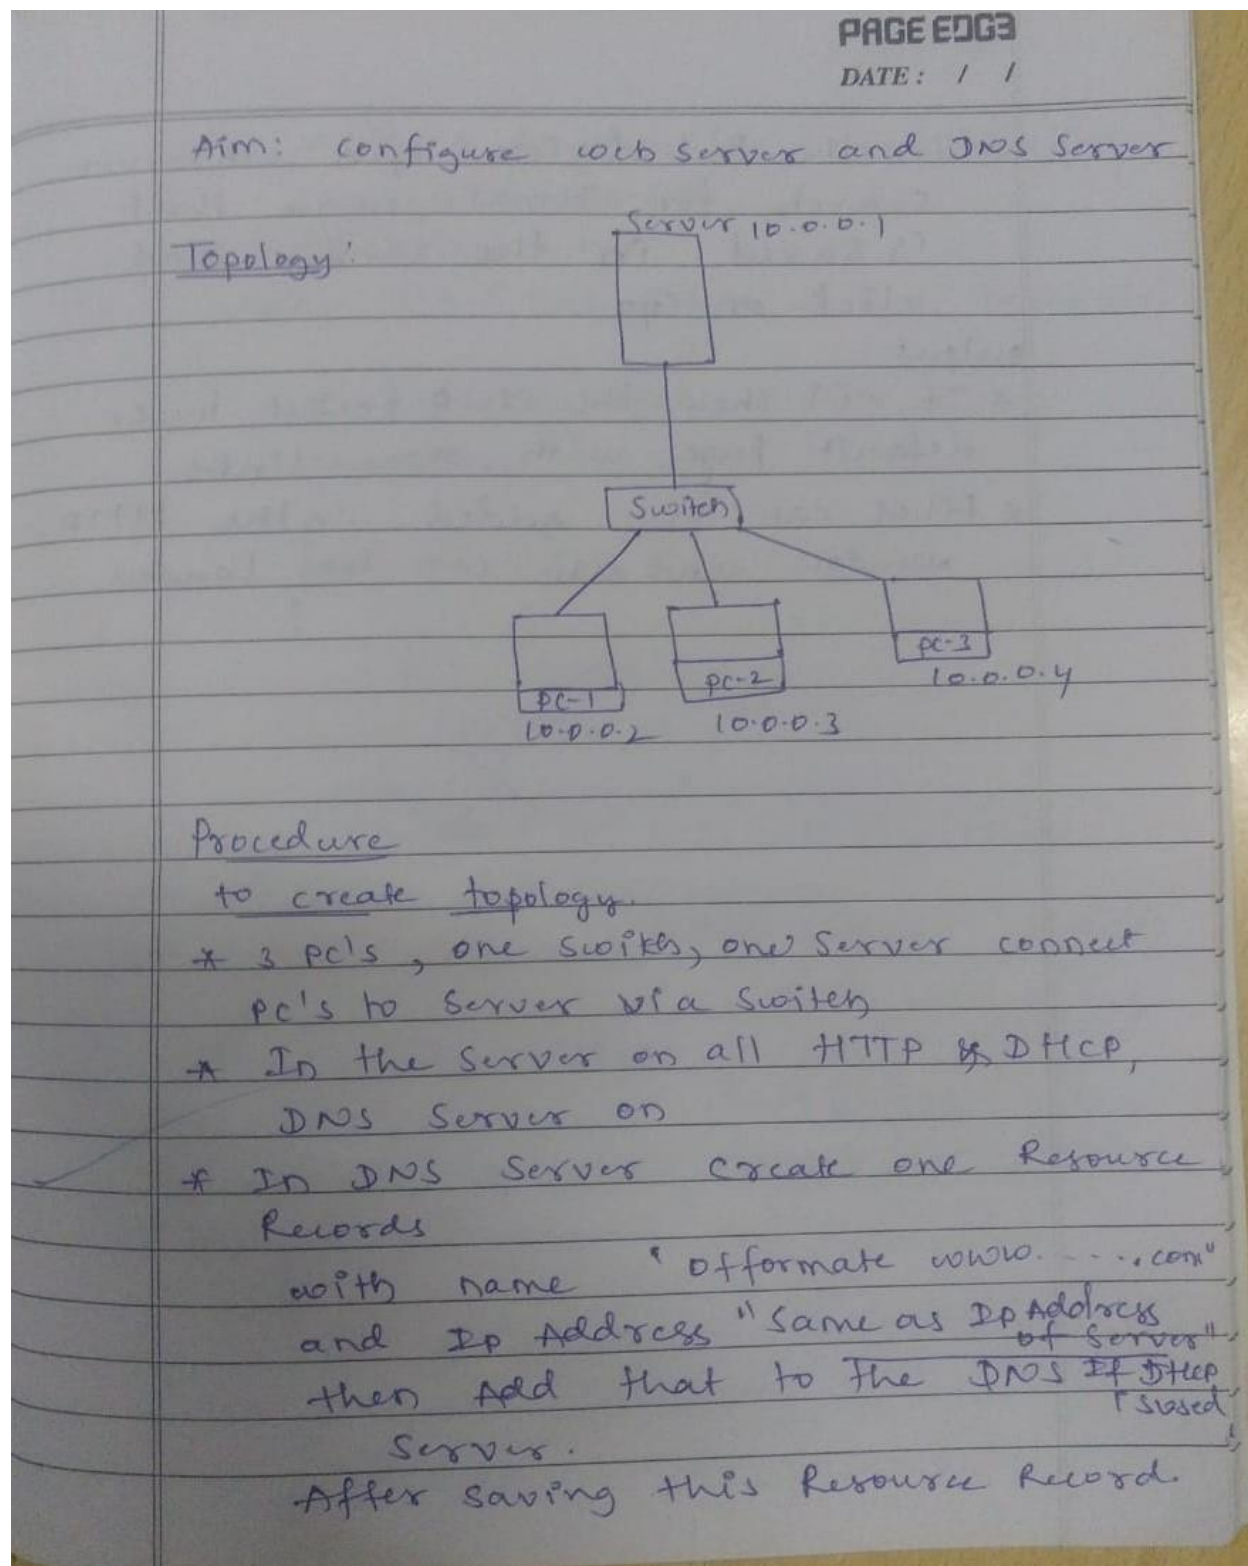 PAGE EDGE
DATE: / /
Aim: configure web server and DNS Server
Server 10.0.0.1
Topology:
Switch
PC-1
PC-2
PC-3
10.0.0.2
10.0.0.3
10.0.0.4
Procedure
to create topology.
* 3 PC's, one switch, one server connect
PC's to server via switch
* In the server on all HTTP DHCP,
DNS Server on
* In DNS Server create one Resource
Records
with name "offormate www......com"
and Ip Address "same as Ip Address
of server"
then Add that to the DNS If DHCP
is used
Server.
After saving this Resource Record.